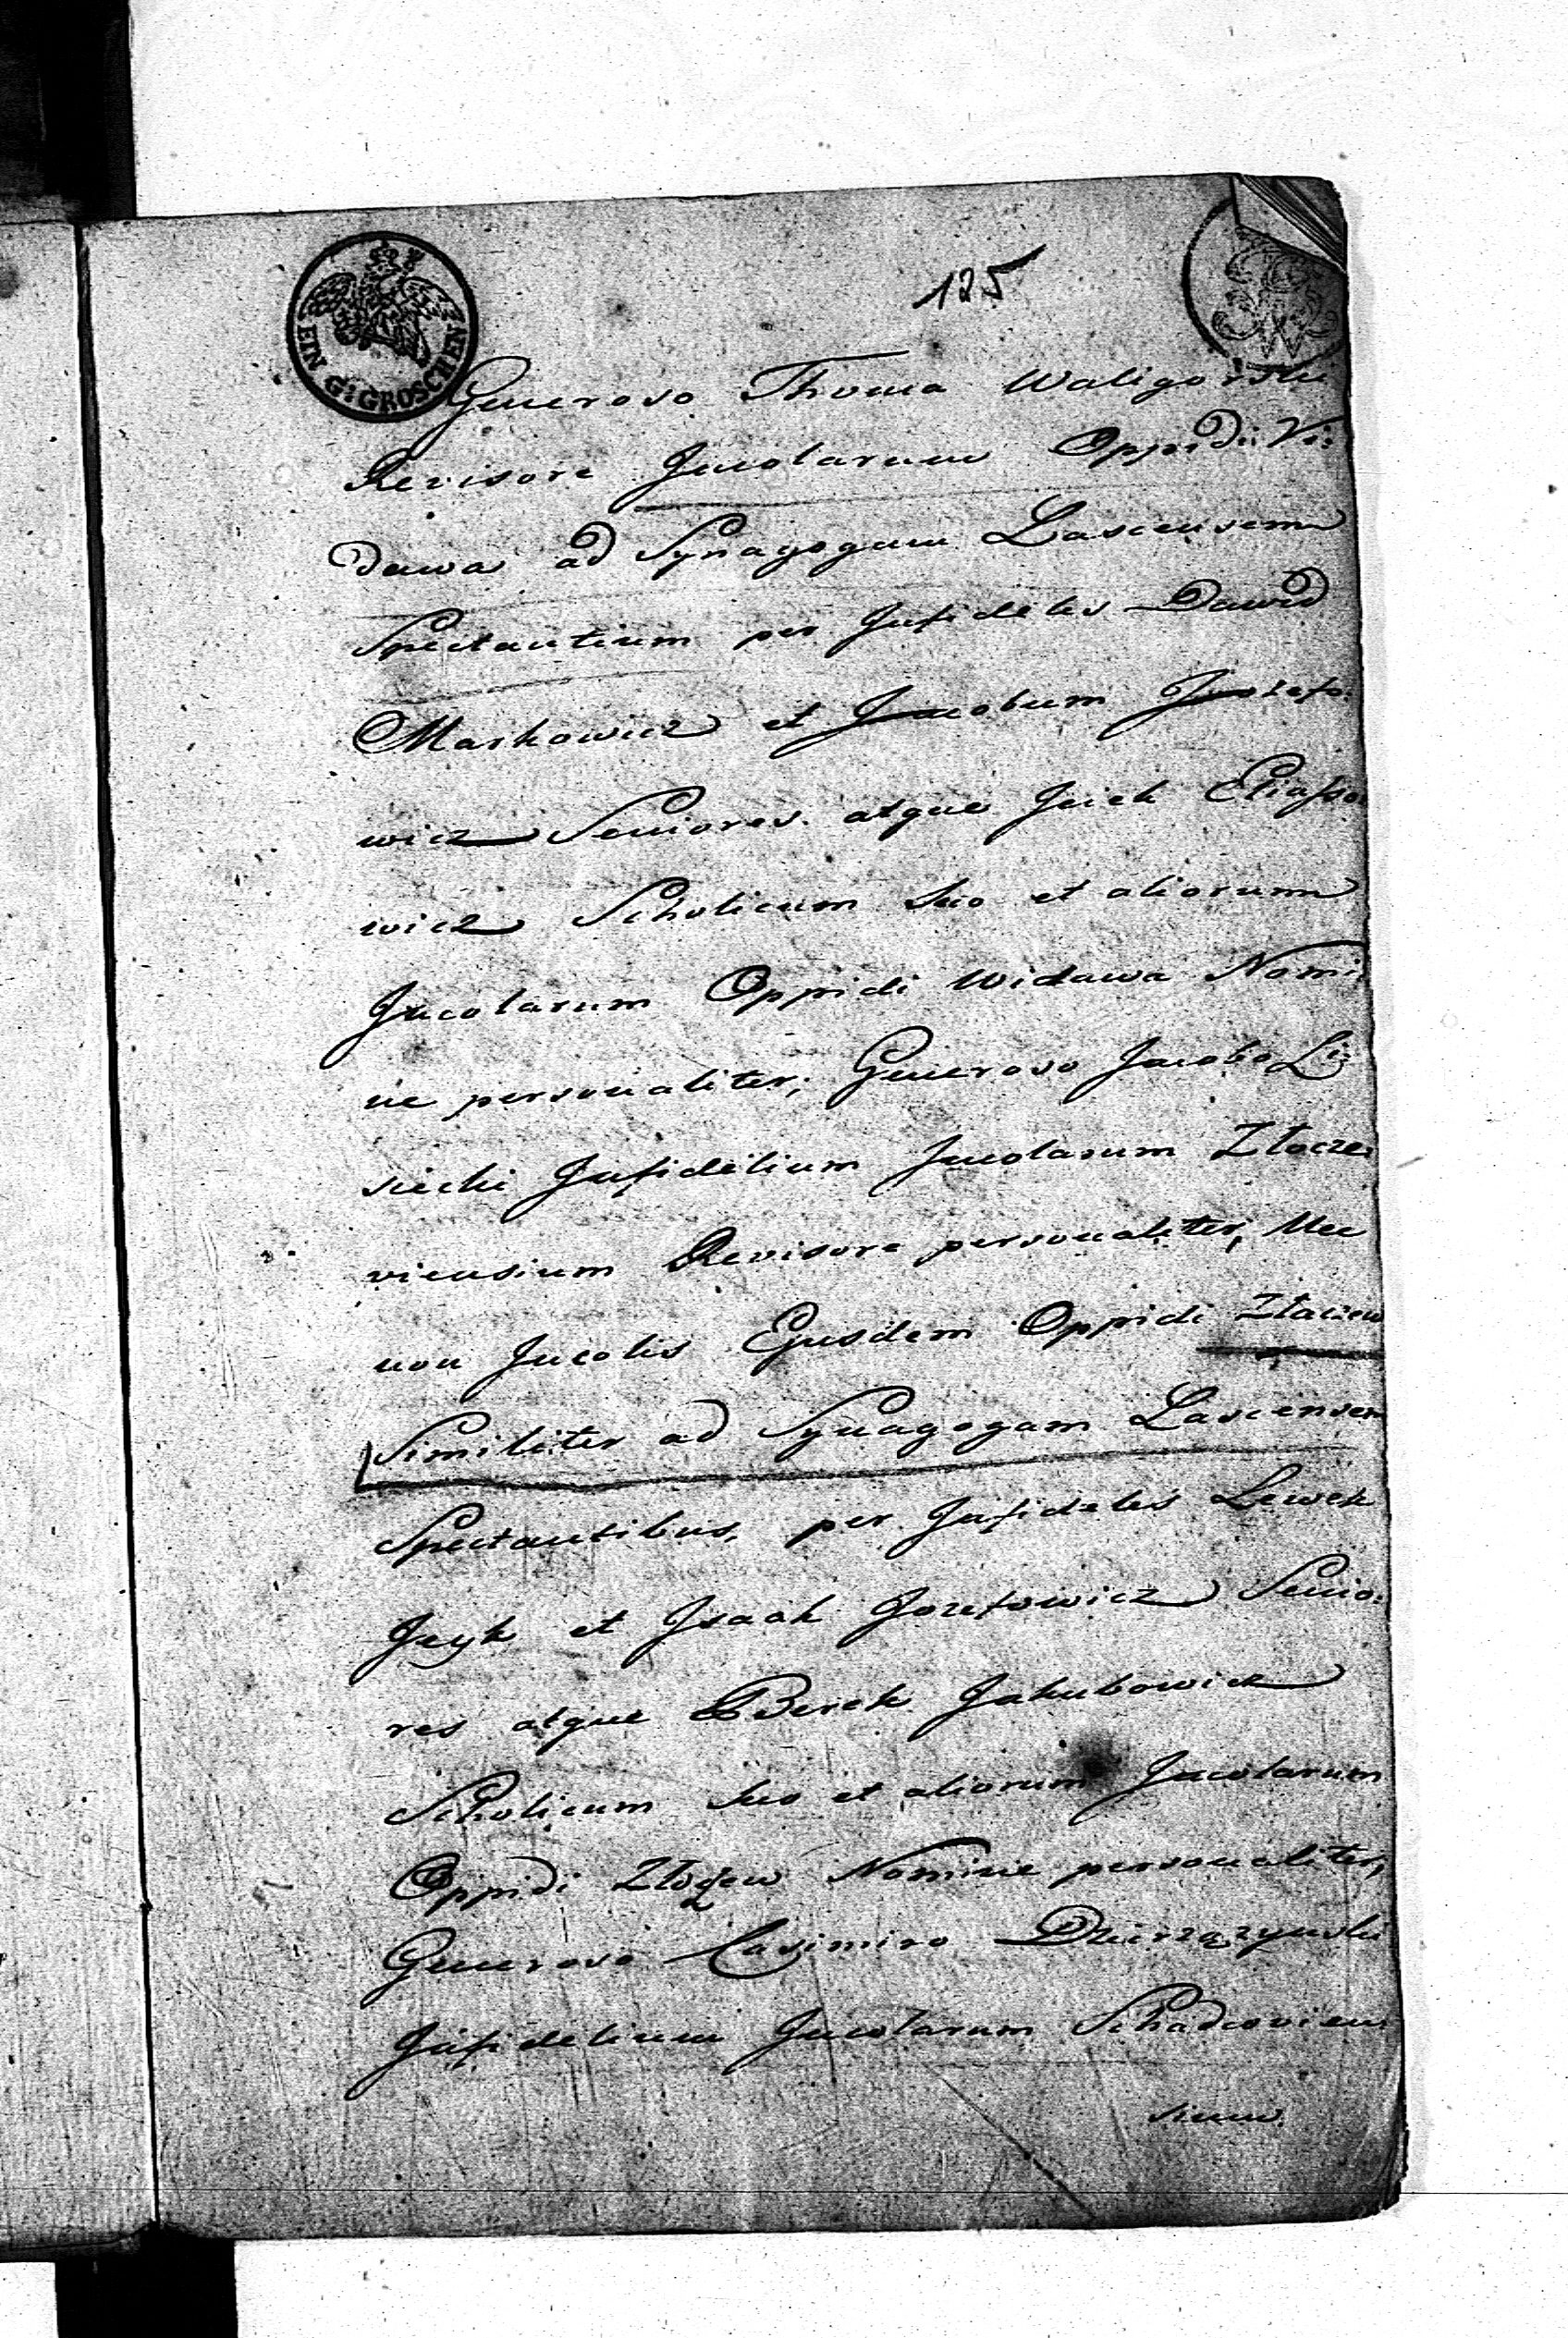 125
EIN G: GROSCHEN
Generoso Thoma Waligorski
Revisore Incolarum Oppidi Vi:
dawa ad Synagogam Lascensem
Spectantium per Infideles Dawid
Markowicz et Jacobum Jozefo:
wicz Seniores atque Jcick Eliasso:
wicz Scholicum suo et aliorum
Incolarum Oppidi Widawa Nomi:
ne personaliter; Generoso Jacobo Li:
siecki Infidelium Incolarum Złocze:
viensium Revisore personaliter, Nec
non Incolis Ejusdem Oppidi Złoczew
Similiter ad Synagogam Lascensem
Spectantibus, per Infideles Lewek
Jcyk et Jsaak Jozefowicz Senio:
res atque Berek Jakubowicz
Scholicum suo et aliorum Incolarum
Oppidi Złoczew Nomine personaliter,
Generoso Casimiro
Infidelium Incolarum Schadcovien:
sium